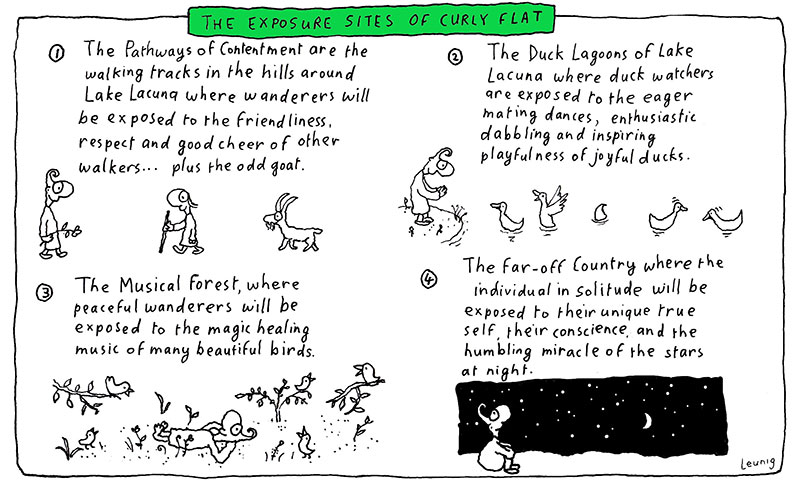 THE EXPOSURE SITES OF CURLY FLAT
① The Pathways of Contentment are the
walking tracks in the hills around
Lake Lacuna where wanderers will
be exposed to the friendliness,
respect and good cheer of other
walkers... plus the odd goat.
② The Duck Lagoons of Lake
Lacuna where duck watchers
are exposed to the eager
mating dances, enthusiastic
dabbling and inspiring
playfulness of joyful ducks.
③ The Musical Forest, where
peaceful wanderers will be
exposed to the magic healing
music of many beautiful birds.
④ The Far-off Country where the
individual in solitude will be
exposed to their unique true
self, their conscience, and the
humbling miracle of the stars
at night.
Leunig